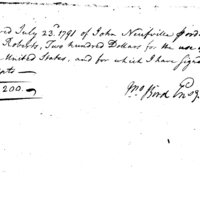 red July 23d. 1791 of John Neufville
Roberts, Two hundred Dollars for the use of
United States, and for which I have signed
200.
Esq